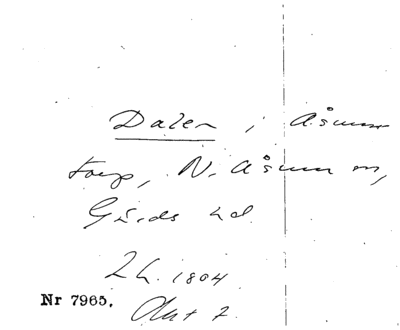 Dalen, i Åsum
torp, N. Åsum sn,
Gärds hd
Lh. 1804
Nr 7965. Akt 7.